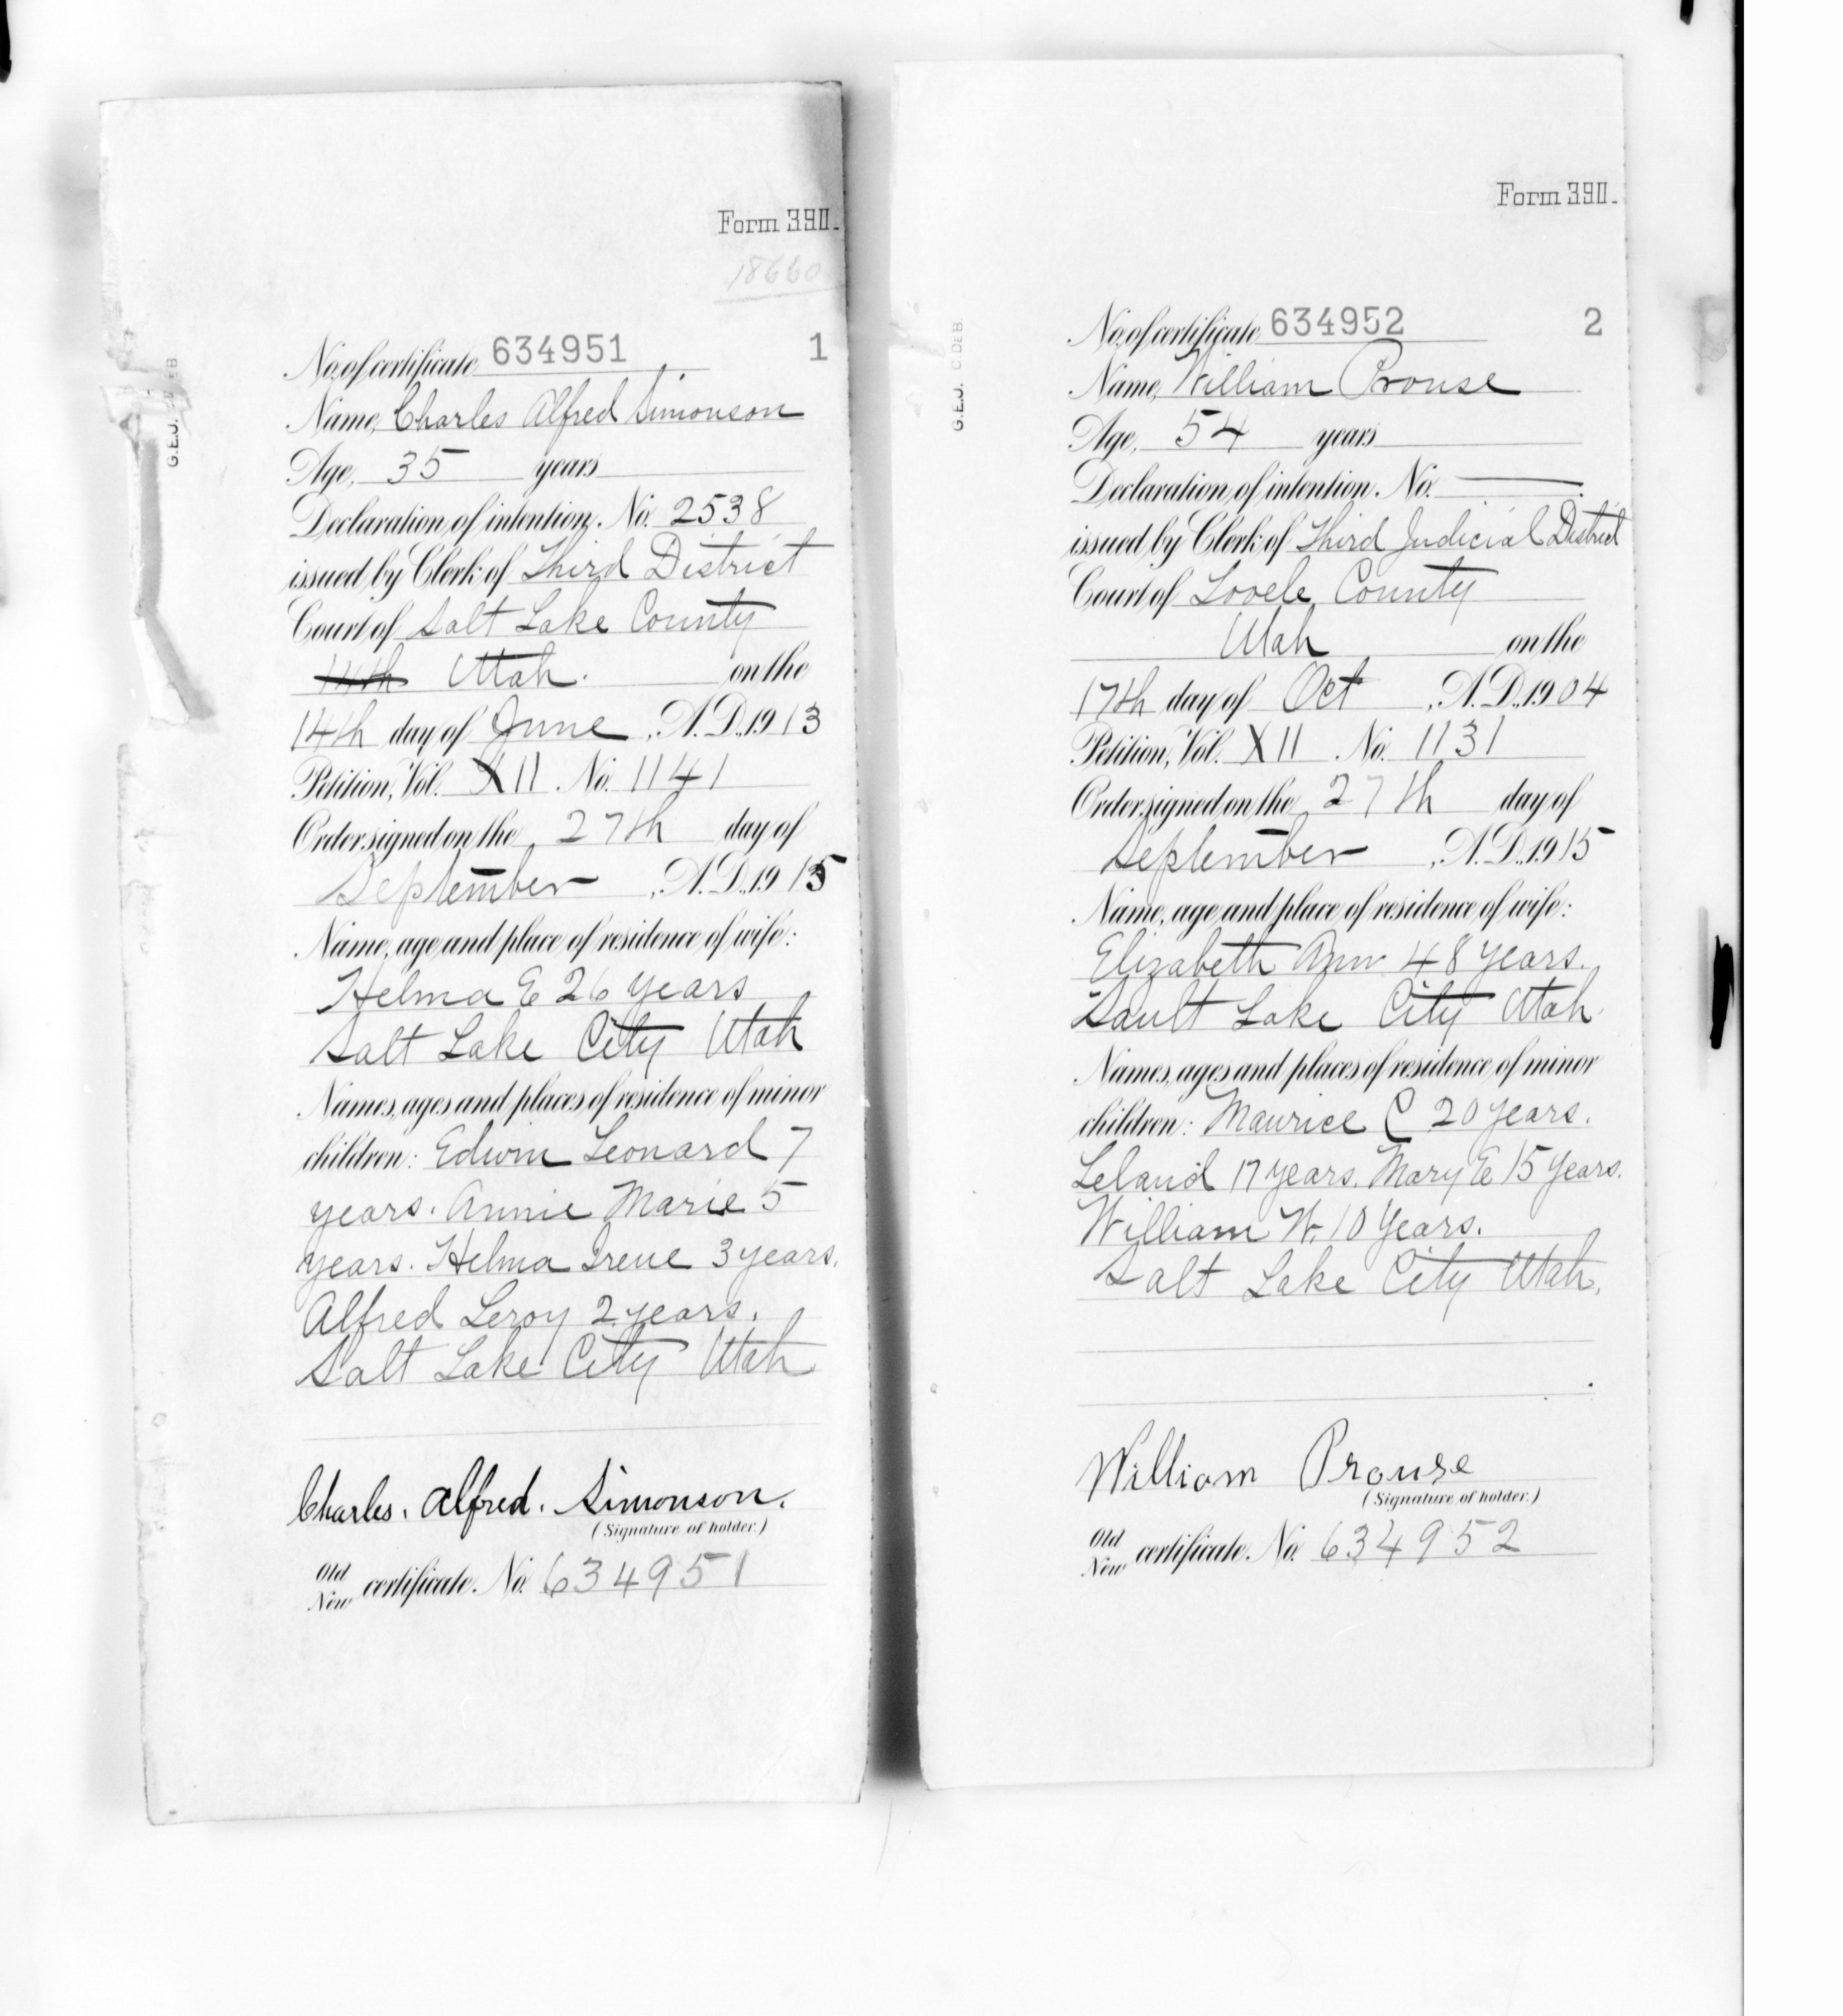 Form 390.
18660
No. of certificate, 634951 1
Name, Charles Alfred Simonson
Age, 35 years
Declaration of intention, No. 2538
issued by Clerk of Third District
Court of Salt Lake County
14th Utah. on the
14th day of June, A.D., 1913
Petition, Vol. XII. No. 1141
Order signed on the 27th day of
September, A.D., 1915
Name, age and place of residence of wife:
Helma E 26 years
Salt Lake City Utah
Names, ages and places of residence of minor
children: Edwin Leonard 7
years. Annie Marie 5
years. Helma Irene 3 years.
Alfred Leroy 2 years.
Salt Lake City Utah
Charles. Alfred. Simonson.
(Signature of holder.)
Old
New certificate. No. 634951
G.E.J.
Form 390.
No. of certificate, 634952 2
Name, William Prouse
Age, 54 years
Declaration of intention, No. —
issued by Clerk of Third Judicial District
Court of Tooele County
Utah on the
17th day of Oct, A.D., 1904
Petition, Vol. XII No. 1131
Order signed on the 27th day of
September, A.D., 1915
Name, age and place of residence of wife:
Elizabeth Ann 48 years.
Sault Lake City Utah.
Names, ages and places of residence of minor
children: Maurice C 20 years.
Leland 17 years. Mary E 15 years.
William W. 10 Years.
Salt Lake City Utah.
William Prouse
(Signature of holder.)
Old
New certificate. No. 634952
G.E.J. C. DEB.